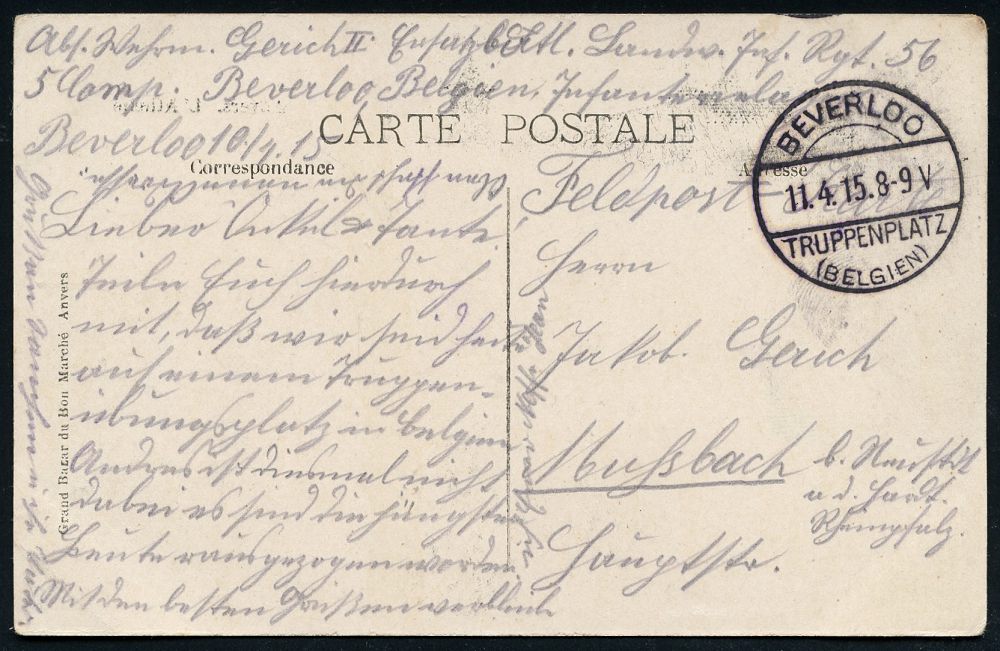 Abs. Wehrm. Gerich II Ersatzbatl. Landw. Inf. Rgt. 56
5 Comp. Beverloo, Belgien, Infanterielager
CARTE POSTALE
Beverloo 10/4. 15
Correspondance
Adresse
Lieber Onkel & Tante!
Teile Euch hierdurch
mit, daß wir seid heute
auf einem Truppen-
übungsplatz in Belgien
Andres ist diesmal nicht
dabei es sind die jüngsten
Leute rausgezogen worden.
Mit den besten Grüßen verbleibe
Euer Neffe Jean
Grand Bazar du Bon Marché Anvers
Feldpost
Herrn
Jakob Gerich
Mußbach b. Neustadt
a d. Hardt.
Rheinpfalz.
Hauptstr.
BEVERLOO
11.4.15.8-9 V
TRUPPENPLATZ
(BELGIEN)